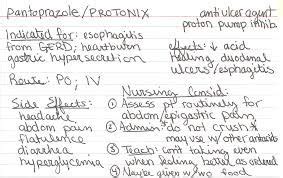 pantoprazole/PROTONIX
antiulcer agent
proton pump inhib.
Indicated for: esophagitis
from GERD; heartburn
gastric hypersecretion
effects: ↓ acid
healing duodenal
ulcers/esphagitis
Route: PO; IV
Side Effects:
headache
abdom pain
flatulence
diarrhea
hyperglycemia
Nursing Consid:
① Assess pt routinely for
abdom/epigastric pain
② Admin: do not crush*
may use w/other antacids
③ Teach: cont taking even
when feeling better as ordered
④ Maybe given w/wo food